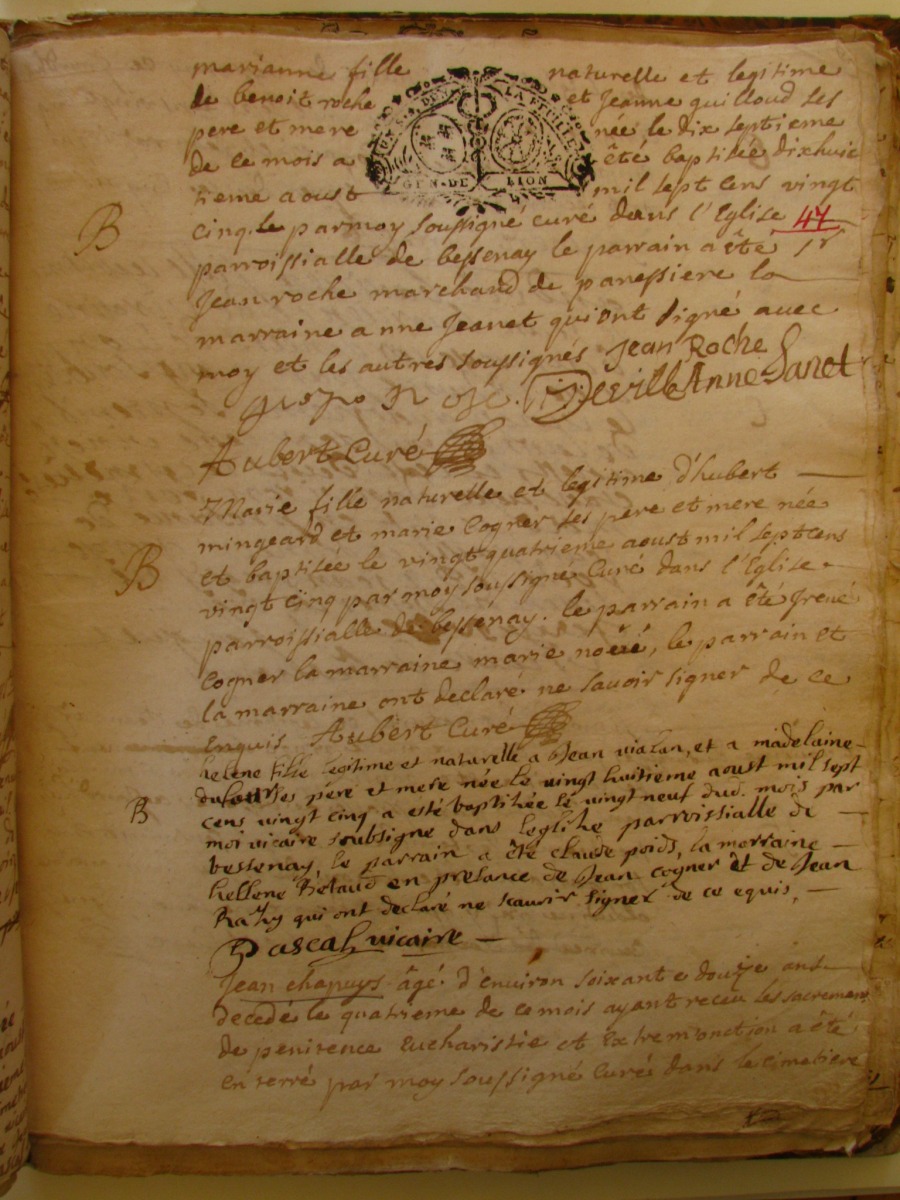 marianne fille naturelle et legitime
de benoit roche et Jeanne quilloud ses
pere et mere née le dix septieme
de ce mois a êté baptisée dixhuic
tieme aoust mil sept cens vingt
GEN DE LION
B
cinq par moy soussigné curé dans l'Eglise 47
parroissialle de bessenay le parrain a ête sr
Jean roche marchand de panessiere la
marraine anne Jeanet qui ont signé avec
moy et les autres soussignés Jean Roche
Deville Anne Janet
Aubert Curé
Marie fille naturelle et legitime d'hubert
mingeard et marie Cogner ses père et mere née
B
et baptisée le vingt quatrieme aoust mil sept cens
vingt cinq par moy soussigné Curé dans l'Eglise
parroissialle de bessénay. le parrain a êté Irené
Cogner la marraine marie noëré, le parrain et
la marraine ont declaré ne savoir signer de ce
Enquis Aubert Curé
helene fille legitime et naturelle a Jean vialan, et a madelaine
dufour ses pere et mere née le vingt huitieme aoust mil sept
B
cens vingt cinq a esté baptihée le vingt neuf dud. mois par
moi vicaire soubsigne dans leglihe parroissialle de
bessenay, le parrain a êté claude poids, la marraine
hellene Retaud en presance de Jean cogner et de Jean
qui ont declaré ne scavoir signer de ce equis,
Pascal vicaire
Jean chapuys âgé d'environ soixante douze ans
decedé le quatrieme de ce mois ayant receu les sacremens
de penitence Eucharistie et Extrem'onction a êté
Enterré par moy soussigné Curé dans le Cimetiere